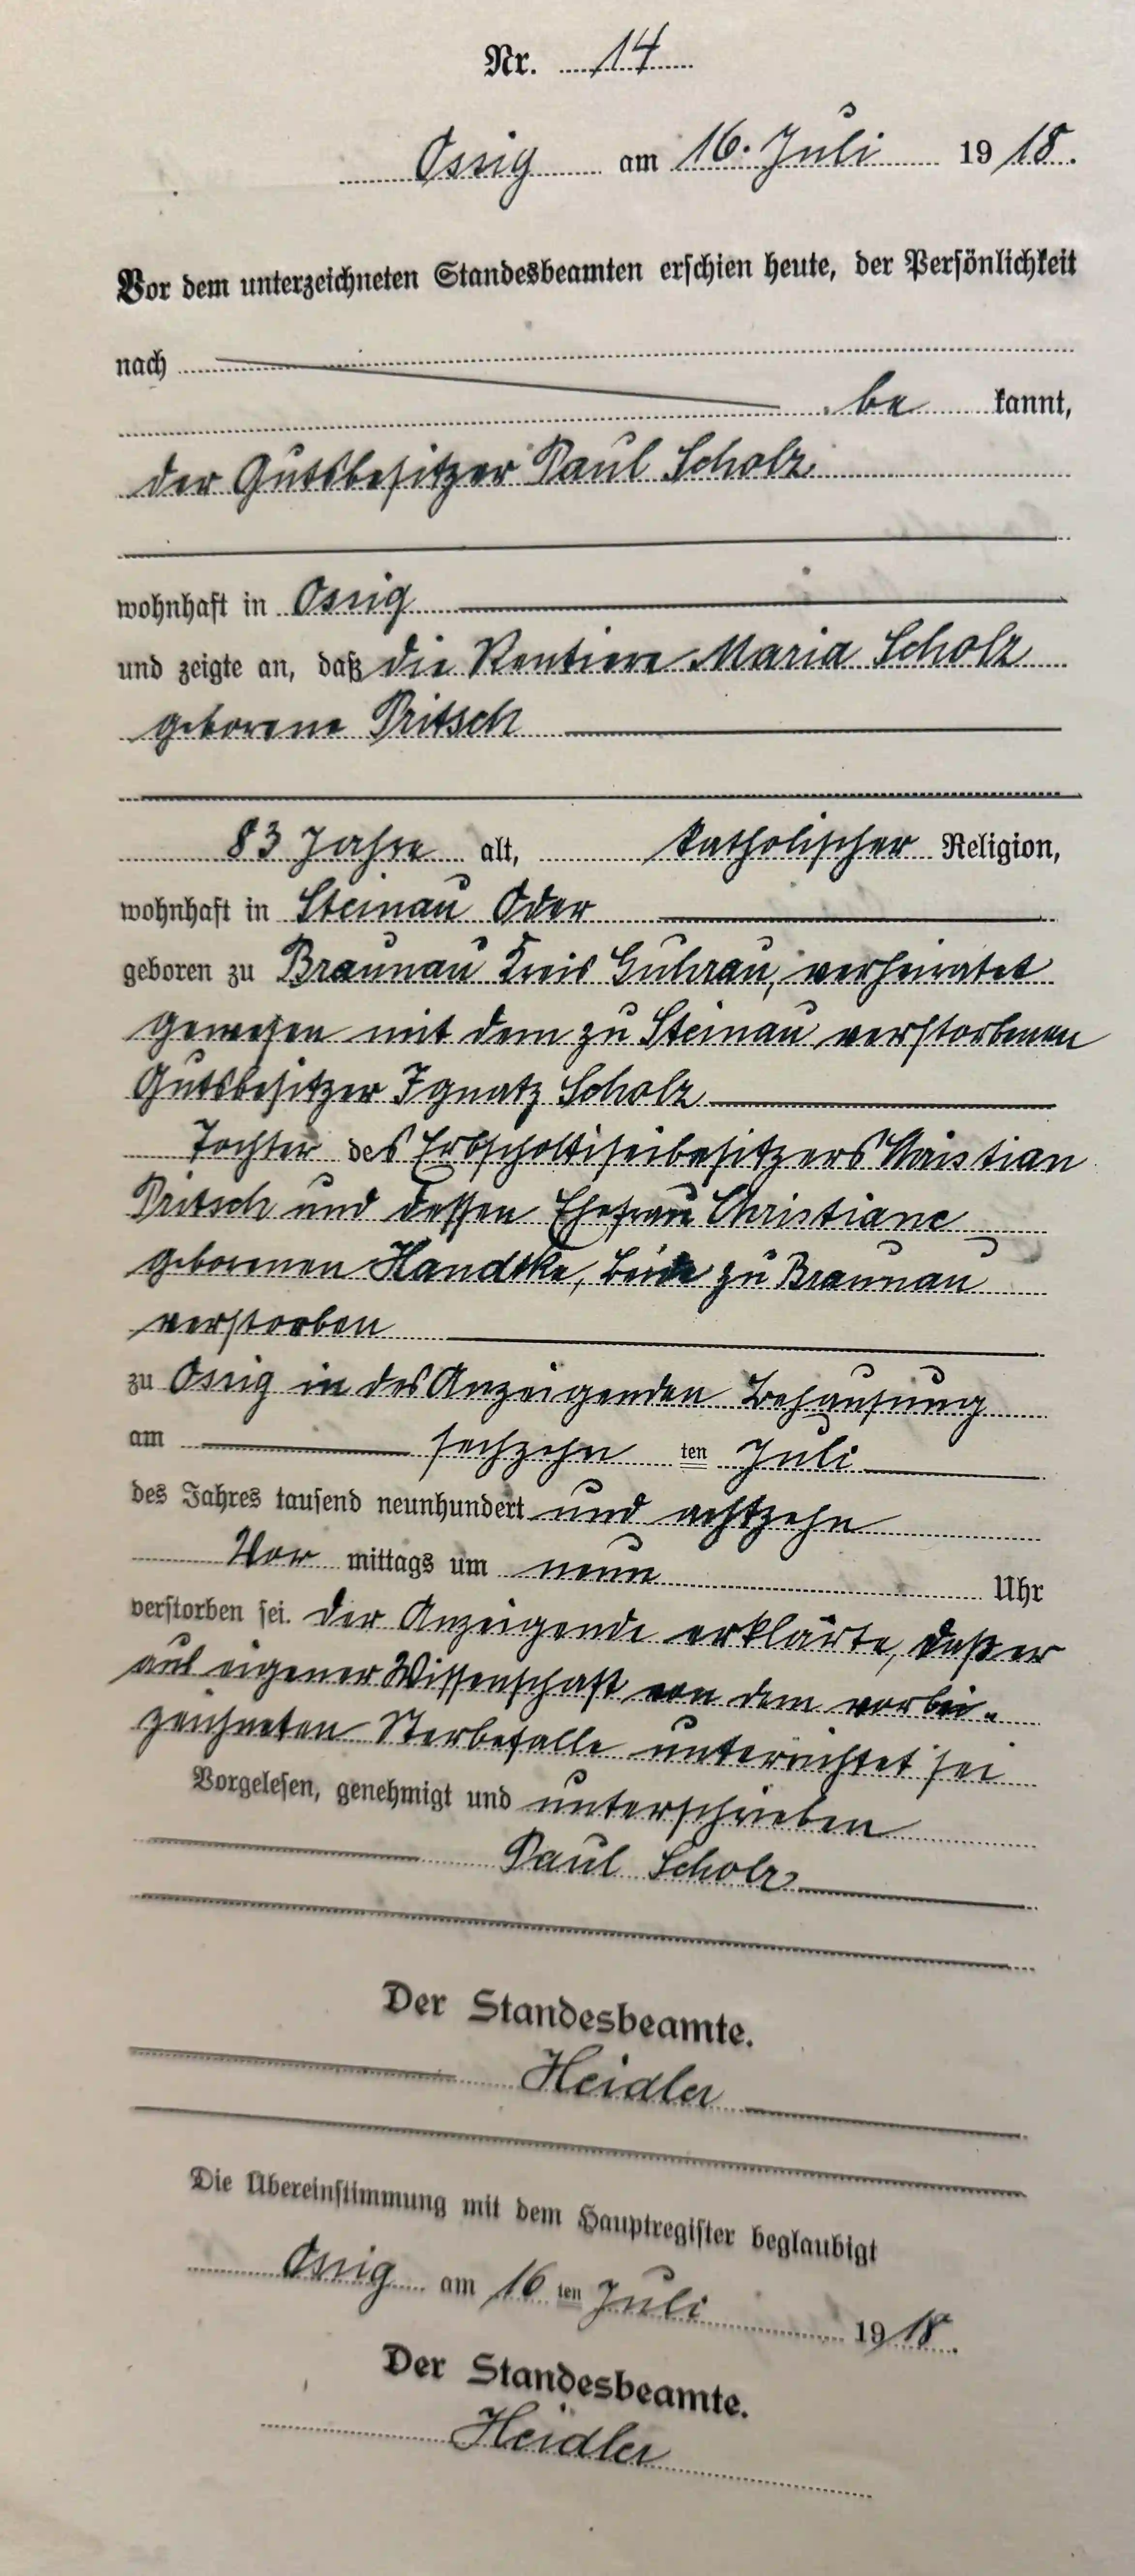 Nr. 14
Ossig am 16. Juli 1918.
Vor dem unterzeichneten Standesbeamten erschien heute, der Persönlichkeit
nach
be kannt,
der Gutsbesitzer Paul Scholz
wohnhaft in Ossig
und zeigte an, daß die Rentiere Maria Scholz
geborene Pritsch
83 Jahre alt, katholischer Religion,
wohnhaft in Steinau Oder
geboren zu Braunau Kreis Guhrau, verheiratet
gewesen mit dem zu Steinau verstorbenen
Gutsbesitzer Ignatz Scholz
Tochter des Erbscholtiseibesitzers Christian
Pritsch und dessen Ehefrau Christiane
geborenen Handtke, beide zu Braunau
verstorben
zu Ossig in des Anzeigenden Behausung
am sechzehn ten Juli
des Jahres tausend neunhundert und achtzehn
Vor mittags um neun Uhr
verstorben sei. Der Anzeigende erklärte, daß er
aus eigener Wissenschaft von dem vorbei-
zeichneten Sterbefalle unterrichtet sei
Vorgelesen, genehmigt und unterschrieben
Paul Scholz
Der Standesbeamte.
Heidler
Die Übereinstimmung mit dem Hauptregister beglaubigt
Ossig am 16 ten Juli 1918.
Der Standesbeamte.
Heidler